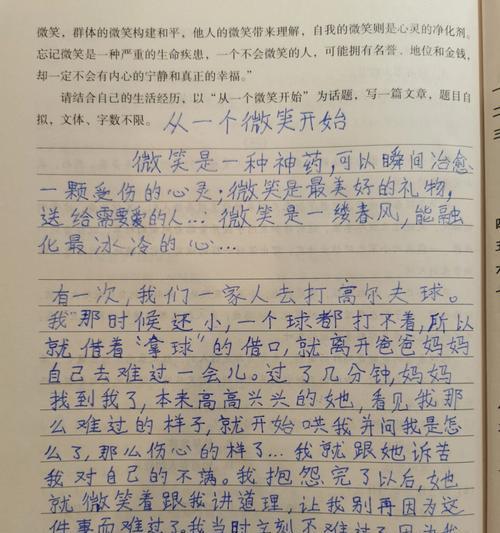 微笑，群体的微笑构建和平，他人的微笑带来理解，自我的微笑则是心灵的净化剂。
忘记微笑是一种严重的生命疾患，一个不会微笑的人，可能拥有名誉、地位和金钱，
却一定不会有内心的宁静和真正的幸福。”
请结合自己的生活经历，以“从一个微笑开始”为话题，写一篇文章，题目自
拟，文体、字数不限。
从一个微笑开始
微笑是一种神药，可以瞬间治愈
一颗受伤的心灵；微笑是最美好的礼物，
送给需要爱的人…；微笑是一缕春风，能融
化最冰冷的心…
有一次，我们一家人去打高尔夫球。
我那时候还小，一个球都打不着，所以
就借着“拿球”的借口，就离开爸爸妈妈
自己去难过一会儿。过了几分钟，妈妈
找到我了，本来高高兴兴的她，看见我那
么难过的样子，就开始哄我并问我是怎
么了，那么伤心的样子…我就跟她诉苦
我对自己的不满。我抱怨完了以后，她
就微笑着跟我讲道理，让我别再因为这
件事而难过了。我当时立刻不难过了，因为我